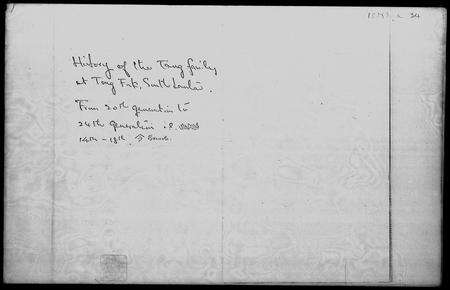 34
History of the Tang family
at Tong Fuk, South Lantau.
From 20th generation to
24th generation i.e.
14th - 18th